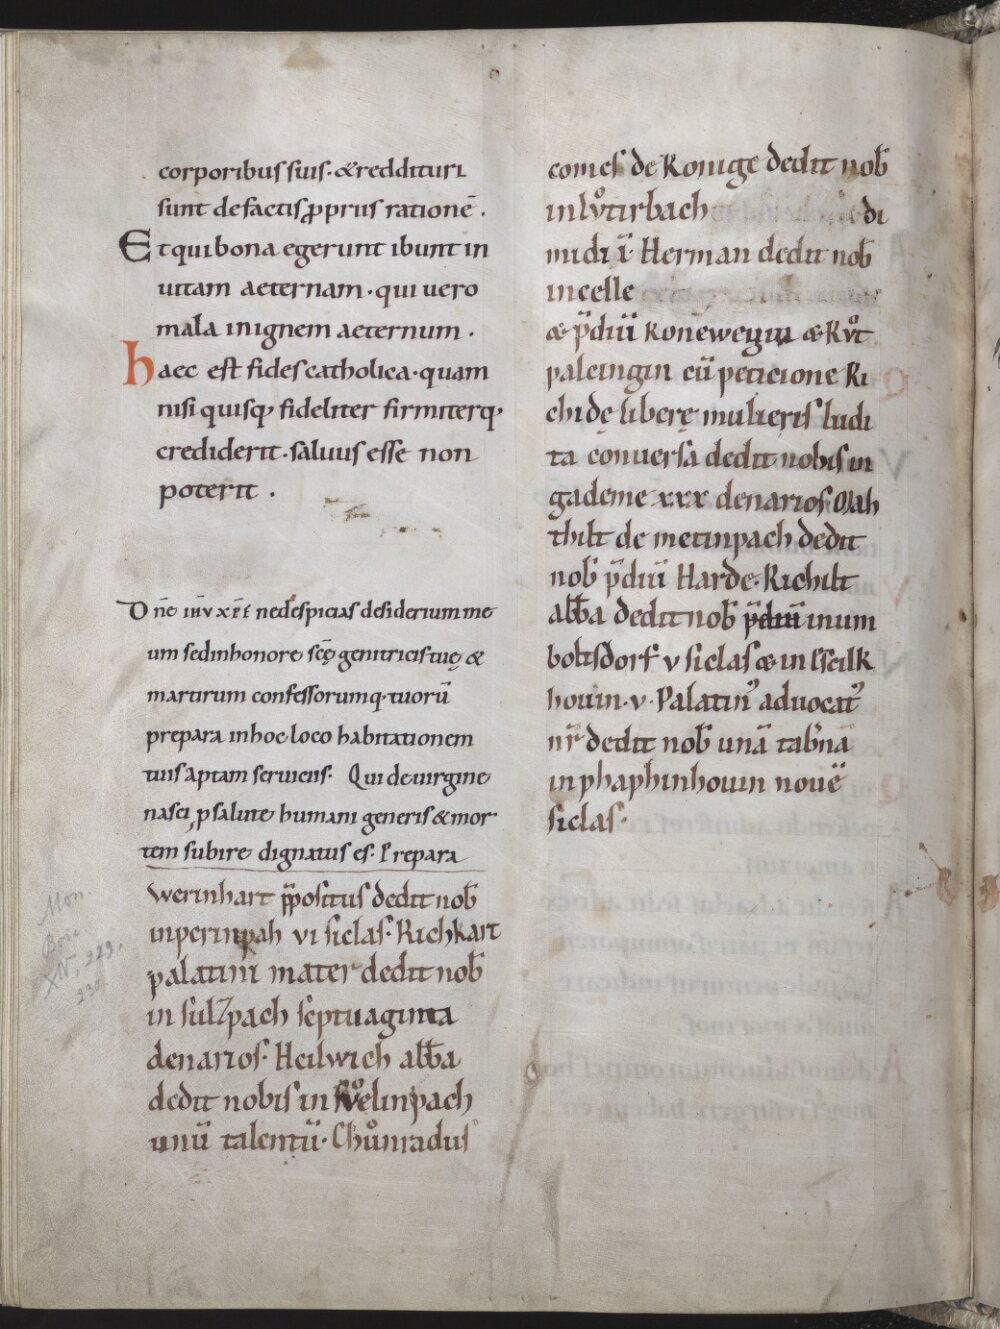 corporibus suis · & reddituri
sunt de factis ꝓpriis rationē .
Et qui bona egerunt ibunt in
uitam aeternam · qui uero
mala in ignem aeternum .
haec est fides catholica · quam
nisi quisq; fideliter firmiterq;
crediderit · saluus esse non
poterit .
Dn̄e ih̄u xp̄e ne despicias desiderium me
um sed in honore sc̄ę genitricis tuę &
martirum confessorumq· tuorū
prepara in hoc loco habitationem
tuis aptam seruiens· Qui de uirgine
nasci ꝓ salute humani generis & mor
tem subire dignatus es· Prepara
Werinhart p̄positus dedit nob̄
in perinpah vi siclas· Richkart
palatini mater dedit nob̄
in sulzpach septuaginta
denarios· Heilwich abb̄a
dedit nobis in Rvͦelinpach
unū talentū· Chuͦnradus
Mon.
Boic.
XIV, 229.
230.
comes de Konige dedit nob̄
in lvͦtirbach di
midiū Herman dedit nob̄
in celle
& p̄diū konewegin & Rvͦt
palcingin cū peticione Ri
chide liberę mulieris ludi
ta conuersa dedit nobis in
gademe xxx denarios· Mah
thilt de metinpach dedit
nob̄ p̄diū Harde· Richilt
abb̄a dedit nob̄ p̄diū in um
boltsdorf v siclas & in
houin· v· Palatin᾿ aduocat᾿
nr̄ dedit nob̄ unā tab̄nā
in phaphinhouin nouē
siclas·